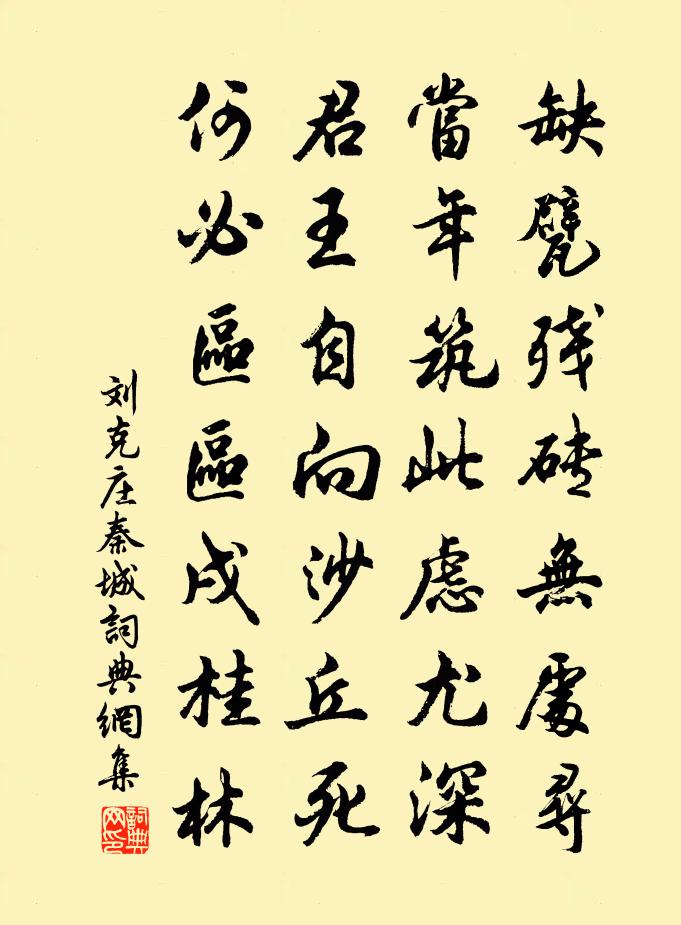 缺甓残砖無處尋
當年筑此慮尤深
君王自向沙丘死
何必區區戍桂林
刘克庄秦城詞典網集
詞典网印